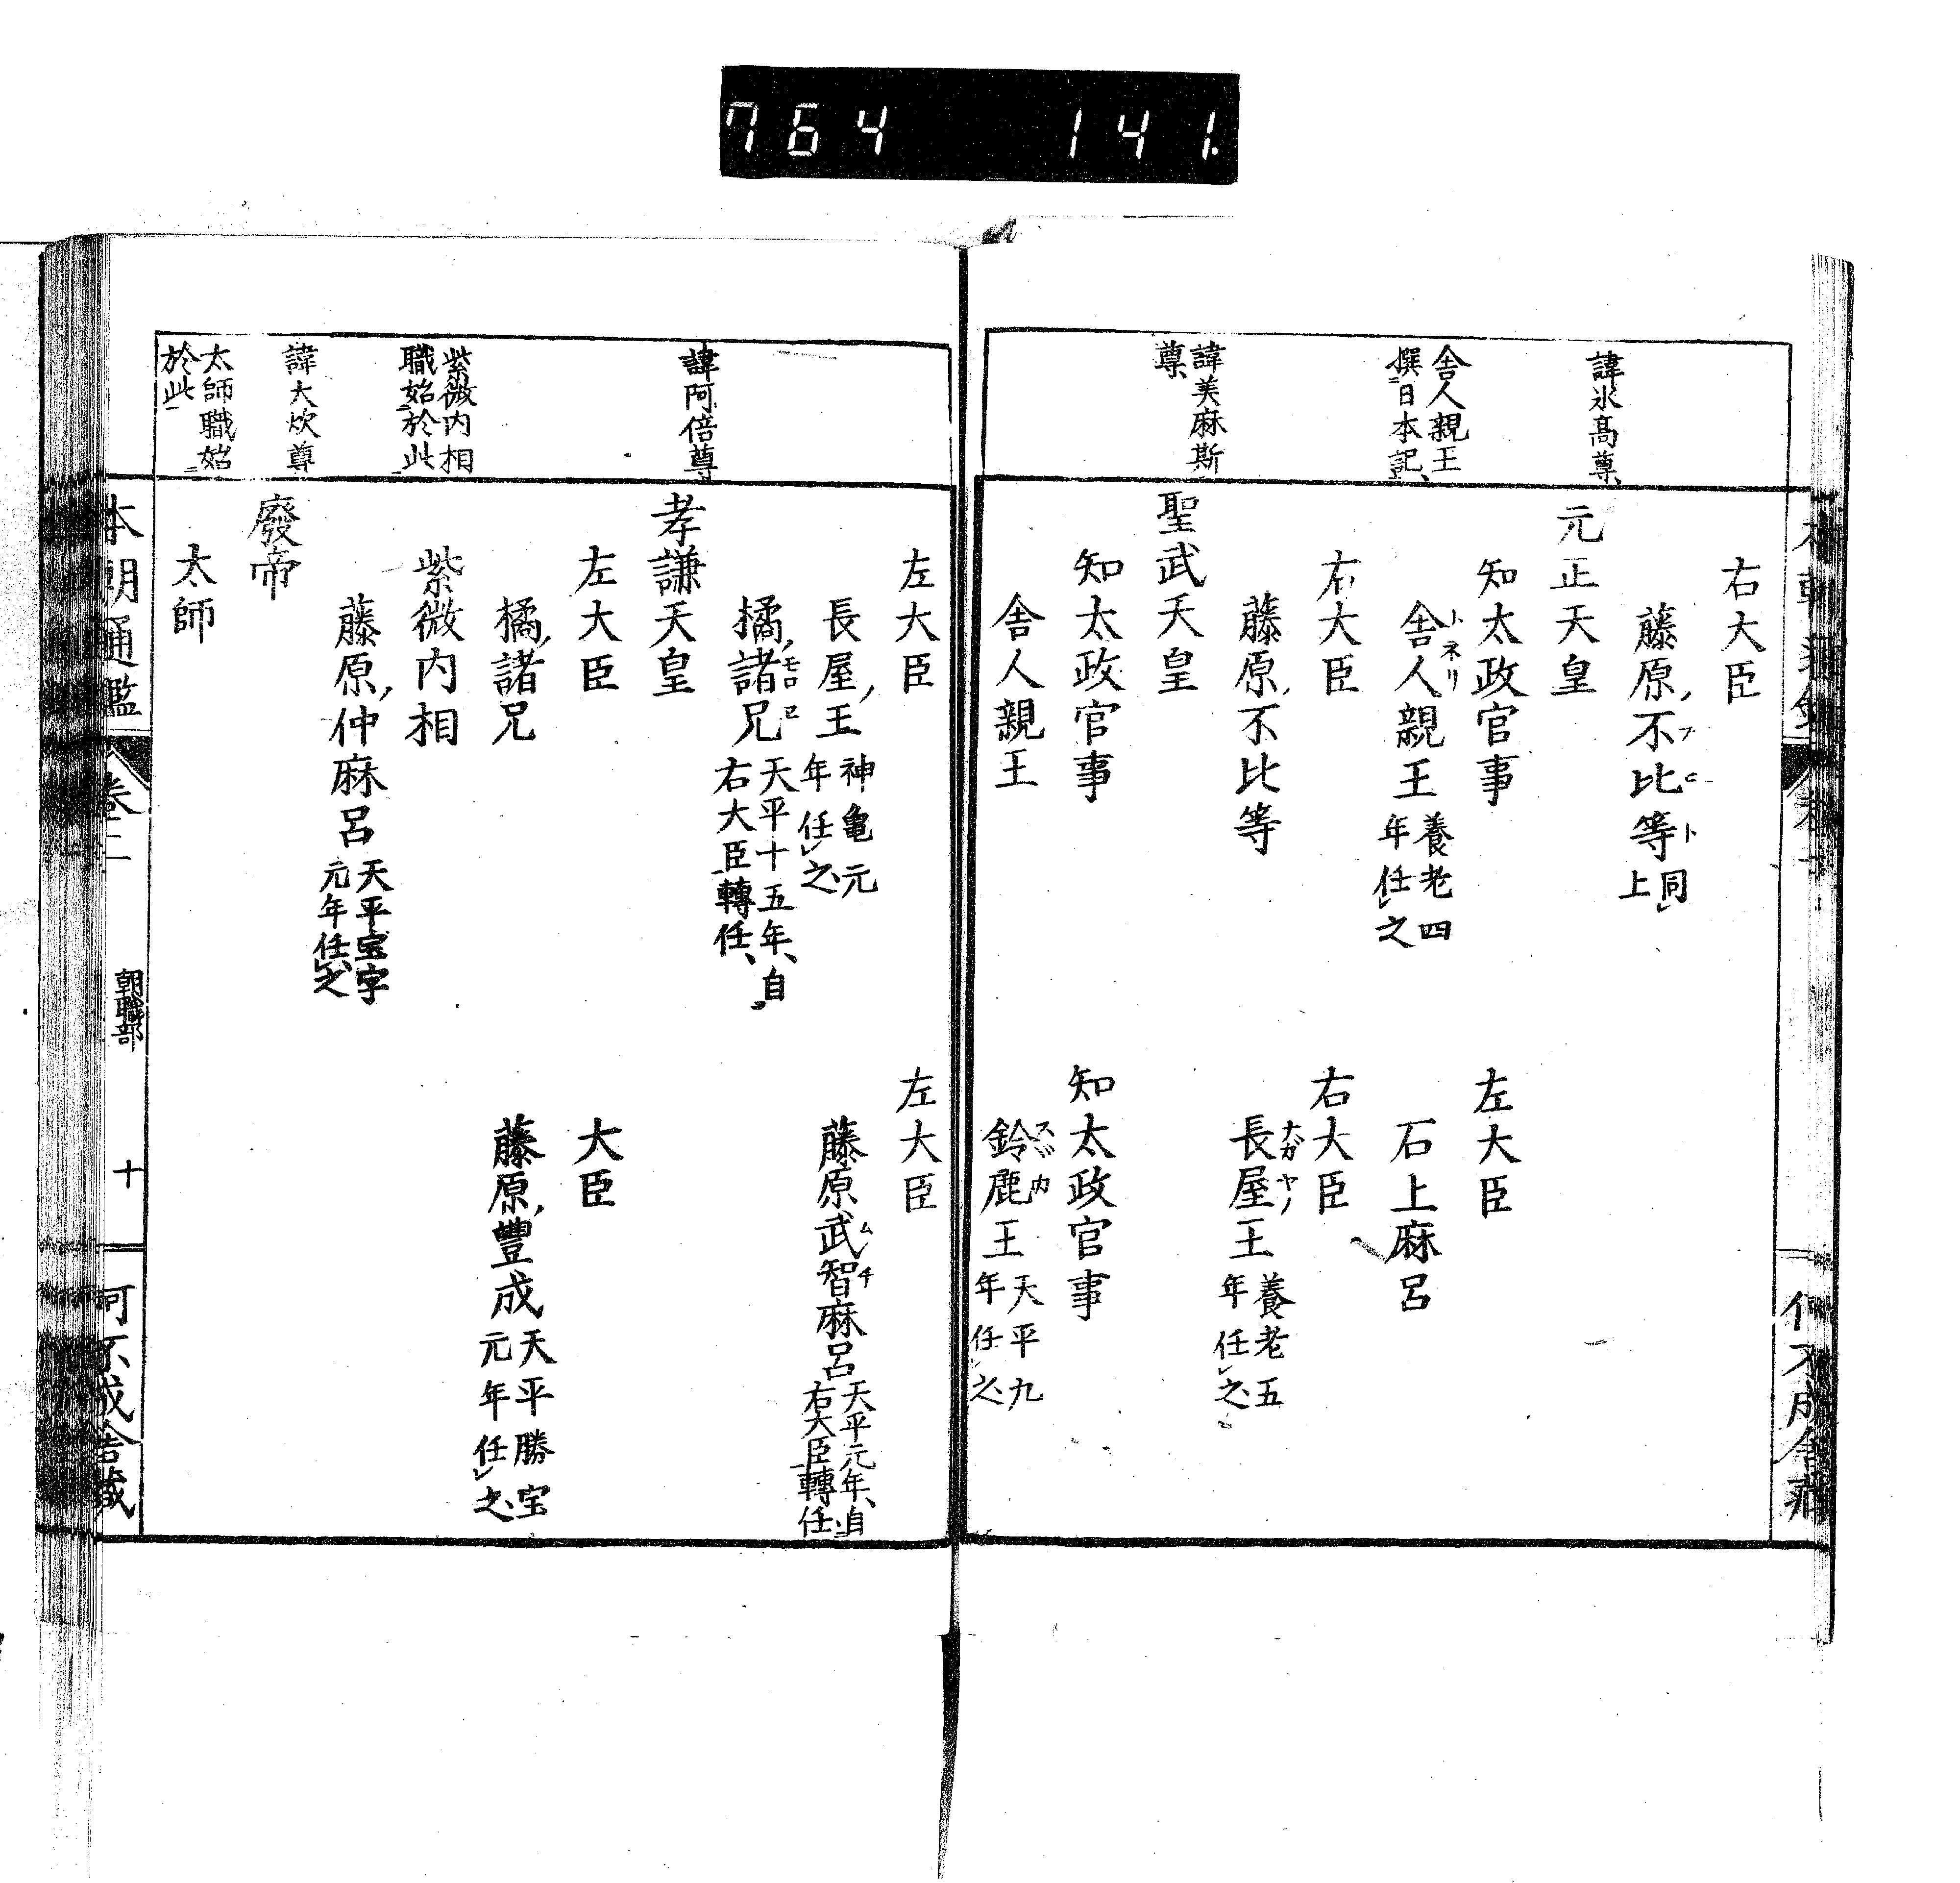 764 141.
右大臣
藤原不比等 同上
フヒト
諱氷高尊
元正天皇
知太政官事
左大臣
舎人親王
撰日本記
舎人親王 養老四
年任之
トネリ
石上麻呂
右大臣
右大臣
藤原不比等
長屋王 養老五
年任之
ナガヤノ
諱美麻斯
尊
聖武天皇
知太政官事
知太政官事
舎人親王
鈴鹿王 天平九
年任之
スヾカ
左大臣
左大臣
長屋王 神亀元
年任之
藤原武智麻呂 天平元年自
右大臣轉任
ムチ
橘諸兄 天平十五年自
右大臣轉任
モロエ
諱阿倍尊
孝謙天皇
左大臣
大臣
橘諸兄
藤原豐成 天平勝宝
元年任之
紫微内相
職始於此
紫微内相
藤原仲麻呂 天平宝字
元年任之
諱大炊尊
廢帝
太師職始
於此
太師
本朝通鑑 卷二 朝職部 十 何不成舎蔵